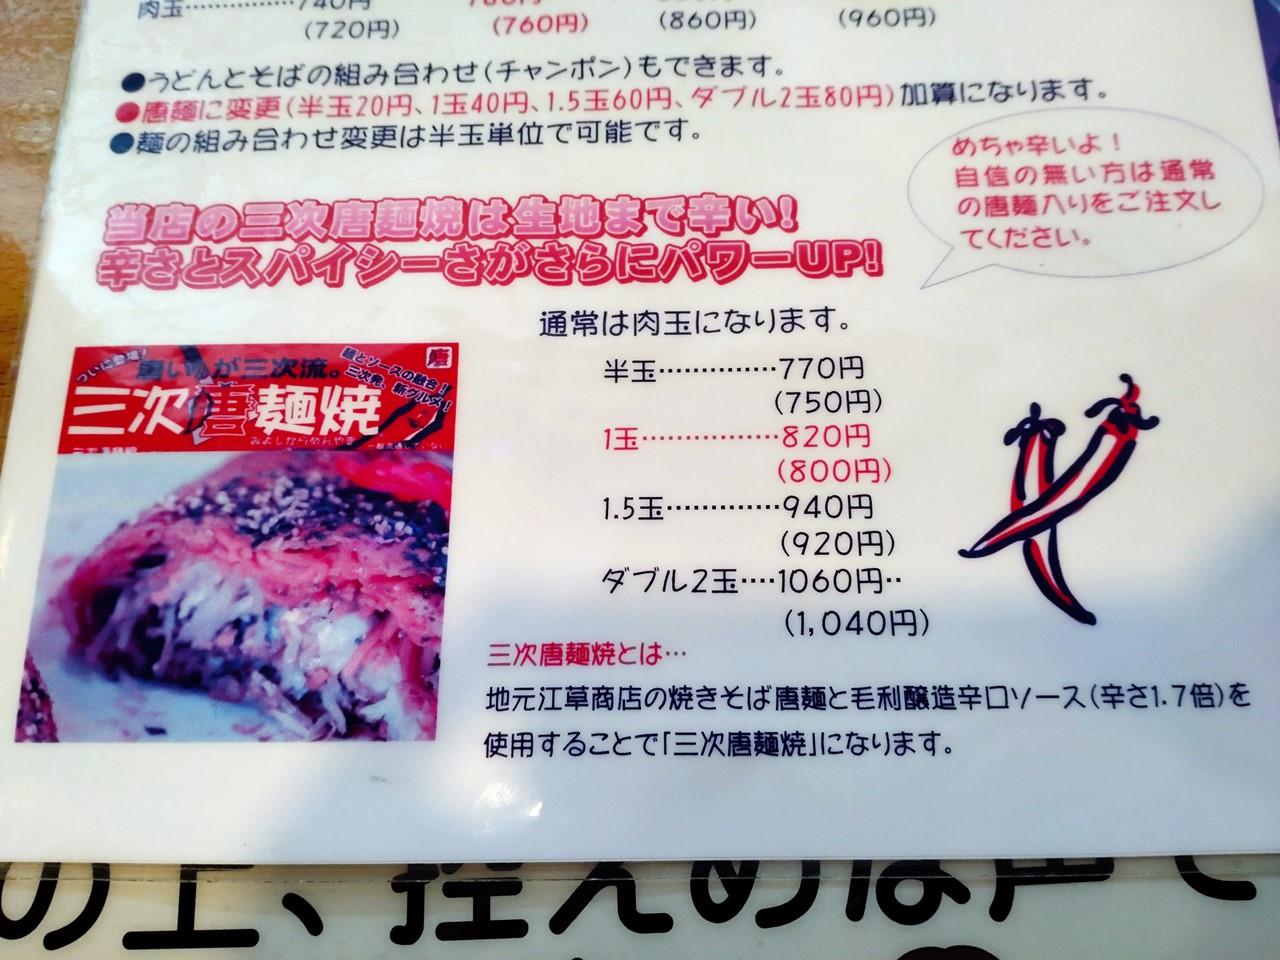 肉玉……………740円
(720円) (760円) (860円) (960円)
●うどんとそばの組み合わせ(チャンポン)もできます。
●唐麺に変更(半玉20円、1玉40円、1.5玉60円、ダブル2玉80円)加算になります。
●麺の組み合わせ変更は半玉単位で可能です。
めちゃ辛いよ!
自信の無い方は通常
の唐麺入りをご注文し
てください。
当店の三次唐麺焼は生地まで辛い!
辛さとスパイシーさがさらにパワーUP!
通常は肉玉になります。
半玉……………770円
(750円)
1玉……………820円
(800円)
1.5玉…………940円
(920円)
ダブル2玉‥‥1060円‥
(1,040円)
ついに登場!
が三次流。
麺とソースの融合!
三次発、新グルメ!
唐
三次唐麺焼
みよしからめんやき
三次唐麺焼とは…
地元江草商店の焼きそば唐麺と毛利醸造辛口ソース(辛さ1.7倍)を
使用することで「三次唐麺焼」になります。
の上、控えめな声で